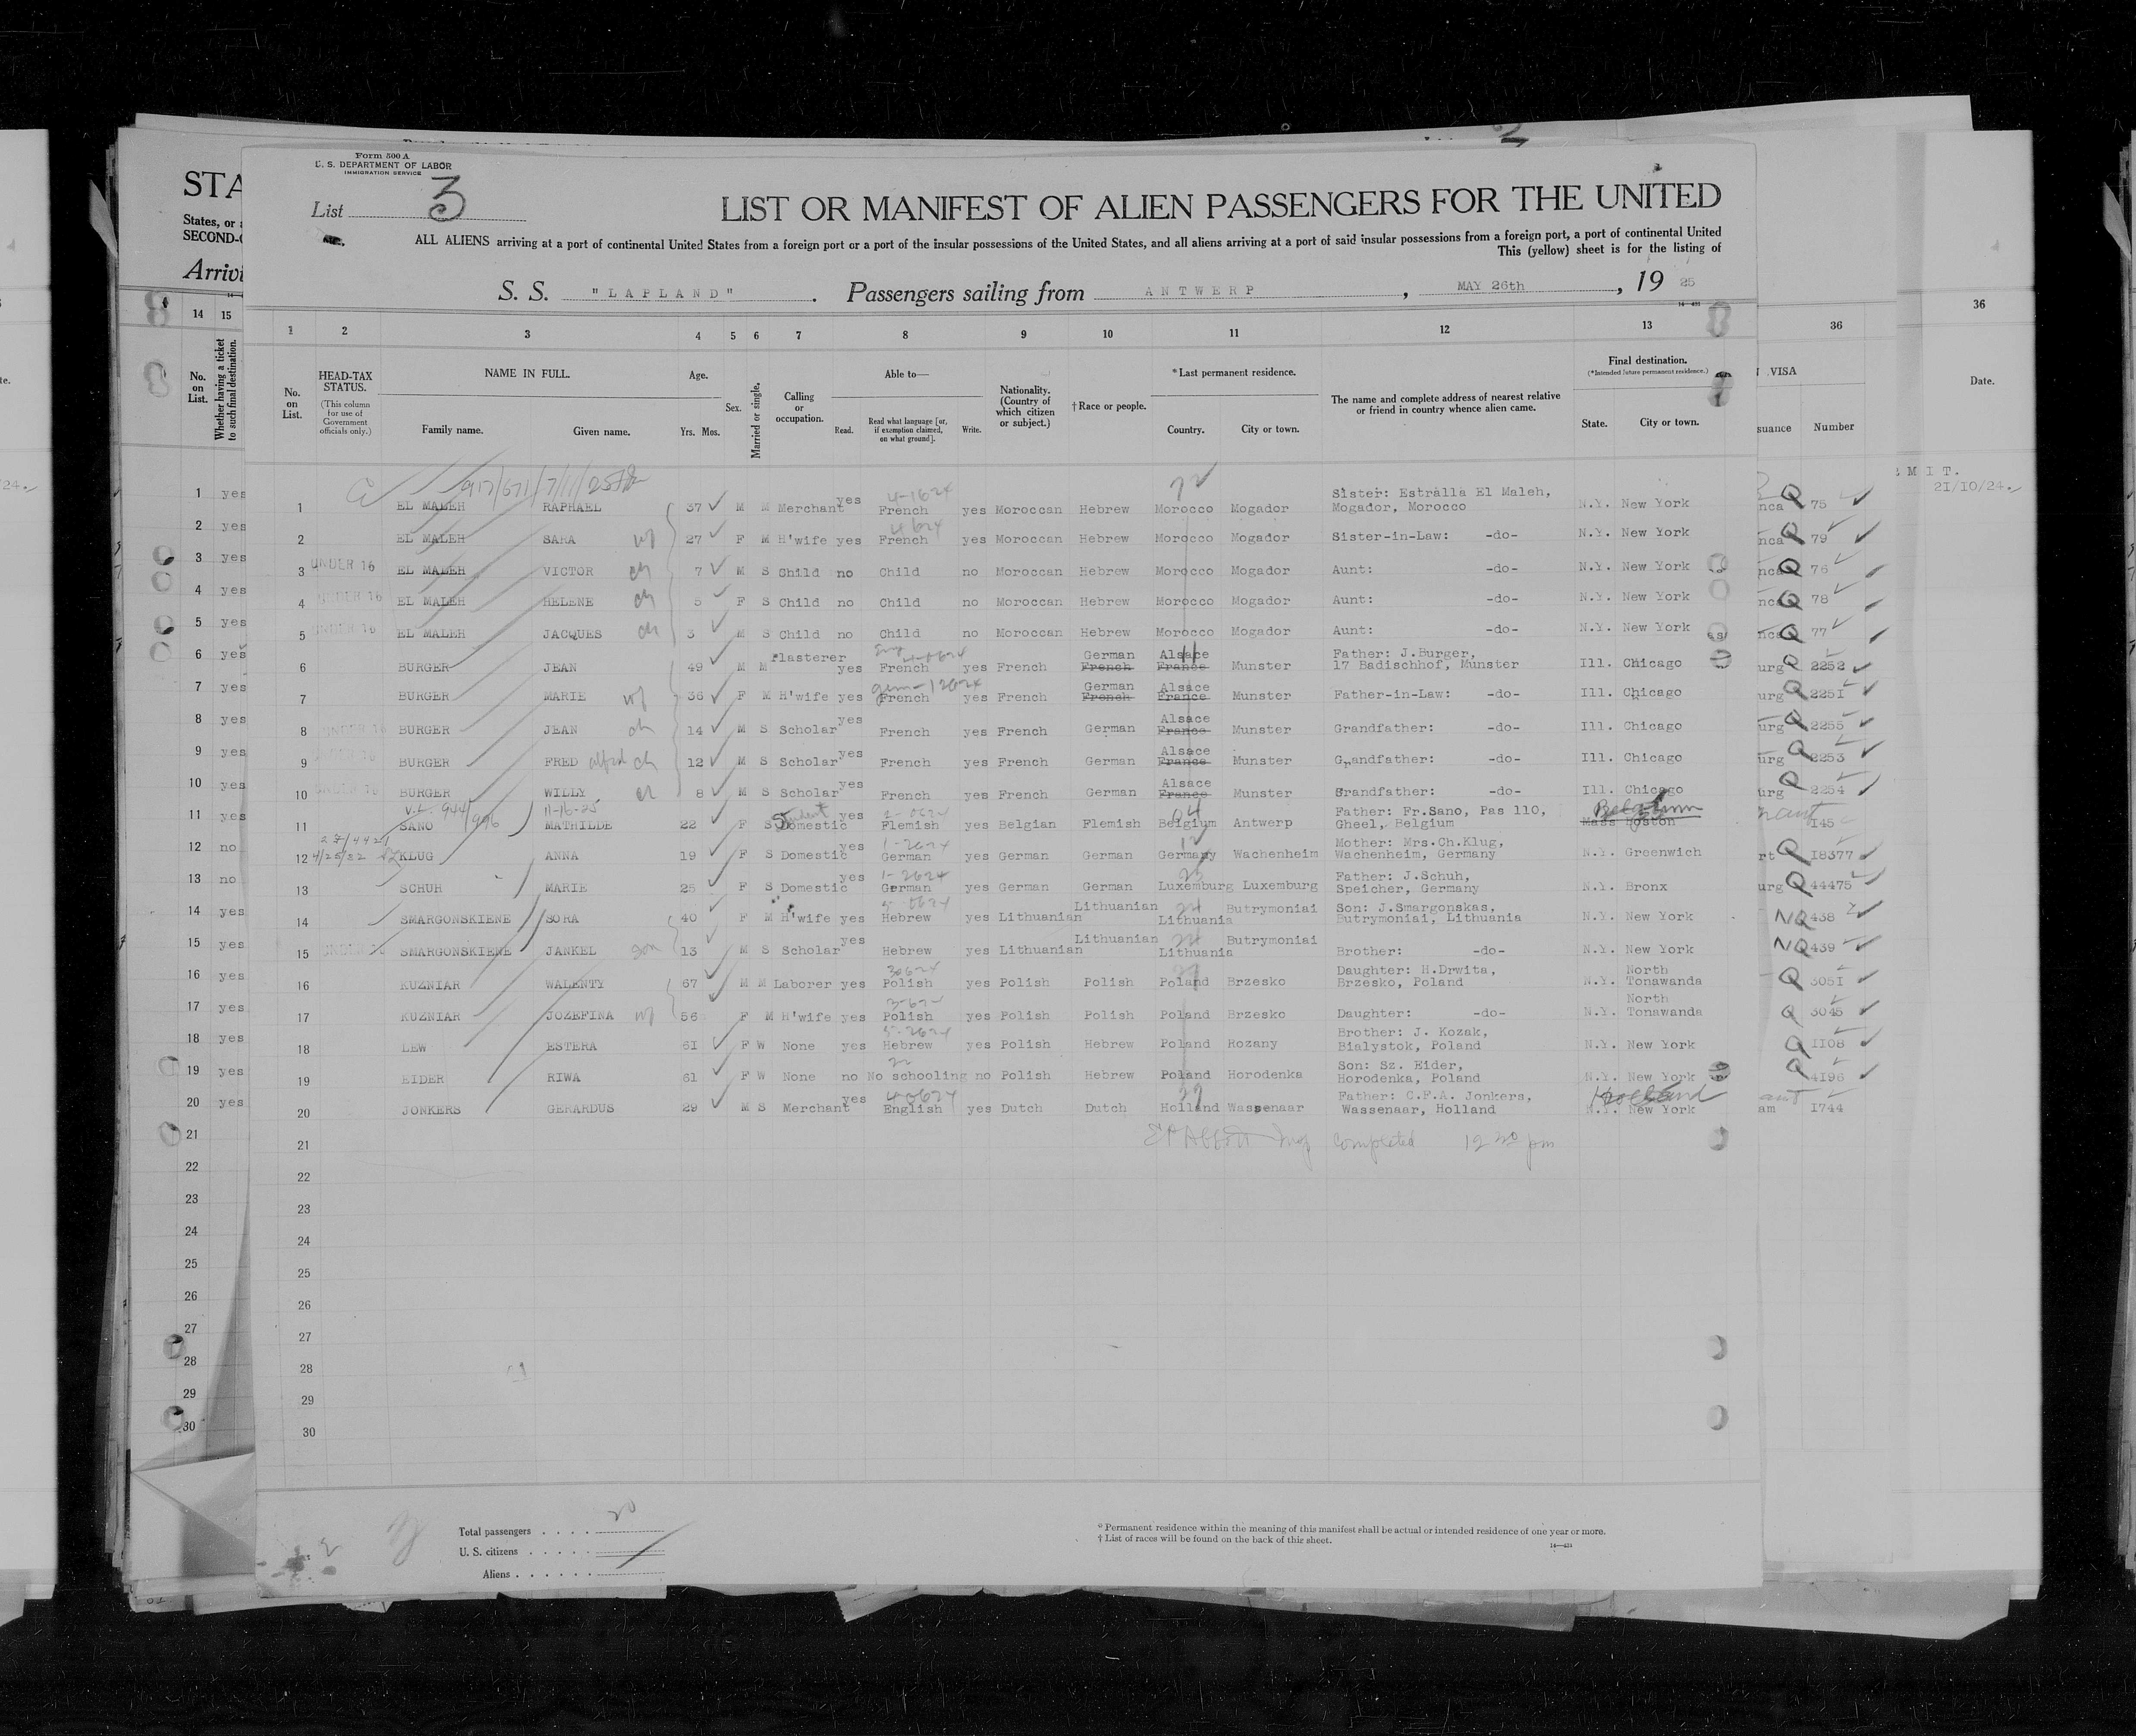 Form 500 A
U. S. DEPARTMENT OF LABOR
IMMIGRATION SERVICE
List 3
LIST OR MANIFEST OF ALIEN PASSENGERS FOR THE UNITED
STA
ALL ALIENS arriving at a port of continental United States from a foreign port or a port of the insular possessions of the United States, and all aliens arriving at a port of said insular possessions from a foreign port, a port of continental United
States, or
SECOND-
This (yellow) sheet is for the listing of
Arrivi
S. S. "LAPLAND". Passengers sailing from ANTWERP, MAY 26th, 19 25
14 15 1 2 3 4 5 6 7 8 9 10 11 12 13 36 36
No. on List.
Whether having a ticket to such final destination.
No. on List.
HEAD-TAX STATUS.
(This column for use of Government officials only.)
NAME IN FULL.
Family name. Given name.
Age.
Yrs. Mos.
Sex.
Married or single.
Calling or occupation.
Able to—
Read. Read what language [or, if exemption claimed, on what ground]. Write.
Nationality. (Country of which citizen or subject.)
†Race or people.
*Last permanent residence.
Country. City or town.
The name and complete address of nearest relative or friend in country whence alien came.
Final destination.
(*Intended future permanent residence.)
State. City or town.
VISA
suance Number
Date.
MIT.
21/10/24.
24.
917/671/7/11/25
1 yes 1 EL MALEH RAPHAEL 37 M M Merchant yes French yes Moroccan Hebrew Morocco Mogador Sister: Estralla El Maleh, Mogador, Morocco N.Y. New York nca Q 75
2 yes 2 EL MALEH SARA wf 27 F M H'wife yes French yes Moroccan Hebrew Morocco Mogador Sister-in-Law: -do- N.Y. New York nca Q 79
3 yes 3 UNDER 16 EL MALEH VICTOR ch 7 M S Child no Child no Moroccan Hebrew Morocco Mogador Aunt: -do- N.Y. New York nca Q 76
4 yes 4 UNDER 16 EL MALEH HELENE ch 5 F S Child no Child no Moroccan Hebrew Morocco Mogador Aunt: -do- N.Y. New York nca Q 78
5 yes 5 UNDER 16 EL MALEH JACQUES ch 3 M S Child no Child no Moroccan Hebrew Morocco Mogador Aunt: -do- N.Y. New York nca Q 77
6 yes 6 BURGER JEAN 49 M M Plasterer yes French yes French German French Alsace France Munster Father: J.Burger, 17 Badischhof, Munster Ill. Chicago urg Q 2252
7 yes 7 BURGER MARIE wf 36 F M H'wife yes French yes French German French Alsace France Munster Father-in-Law: -do- Ill. Chicago urg Q 2251
8 yes 8 UNDER 16 BURGER JEAN ch 14 M S Scholar yes French yes French German Alsace France Munster Grandfather: -do- Ill. Chicago urg Q 2255
9 yes 9 UNDER 16 BURGER FRED alfred ch 12 M S Scholar yes French yes French German Alsace France Munster Grandfather: -do- Ill. Chicago urg Q 2253
10 yes 10 UNDER 16 BURGER WILLY ch 8 M S Scholar yes French yes French German Alsace France Munster Grandfather: -do- Ill. Chicago urg Q 2254
V.L. 944/996 11-16-25
11 yes 11 SANO MATHILDE 22 F S Student Domestic yes Flemish yes Belgian Flemish Belgium Antwerp Father: Fr.Sano, Pas 110, Gheel, Belgium Belgium Mass Boston 145
12 no 12 4/25/32 KLUG ANNA 19 F S Domestic yes German yes German German Germany Wachenheim Mother: Mrs.Ch.Klug, Wachenheim, Germany N.Y. Greenwich rt Q 18377
13 no 13 SCHUH MARIE 25 F S Domestic yes German yes German German Luxemburg Luxemburg Father: J.Schuh, Speicher, Germany N.Y. Bronx urg Q 44475
14 yes 14 SMARGONSKIENE SORA 40 F M H'wife yes Hebrew yes Lithuanian Lithuanian Lithuania Butrymoniai Son: J.Smargonskas, Butrymoniai, Lithuania N.Y. New York NQ 438
15 yes 15 SMARGONSKIENE JANKEL son 13 M S Scholar yes Hebrew yes Lithuanian Lithuanian Lithuania Butrymoniai Brother: -do- N.Y. New York NQ 439
16 yes 16 KUZNIAR WALENTY 67 M M Laborer yes Polish yes Polish Polish Poland Brzesko Daughter: H.Drwita, Brzesko, Poland N.Y. North Tonawanda Q 3051
17 yes 17 KUZNIAR JOZEFINA wf 56 F M H'wife yes Polish yes Polish Polish Poland Brzesko Daughter: -do- N.Y. North Tonawanda Q 3045
18 yes 18 LEW ESTERA 61 F W None yes Hebrew yes Polish Hebrew Poland Rozany Brother: J. Kozak, Bialystok, Poland N.Y. New York Q 1108
19 yes 19 EIDER RIWA 61 F W None no No schooling no Polish Hebrew Poland Horodenka Son: Sz. Eider, Horodenka, Poland N.Y. New York Q 4196
20 yes 20 JONKERS GERARDUS 29 M S Merchant yes English yes Dutch Dutch Holland Wassenaar Father: C.F.A. Jonkers, Wassenaar, Holland Holland N.Y. New York am 1744
21 21 EP Abbott Insp Completed 12 20 pm
22 22
23 23
24 24
25 25
26 26
27 27
28 28
29 29
30 30
Total passengers . . . . 20
U. S. citizens . . . . .
Aliens . . . . . .
* Permanent residence within the meaning of this manifest shall be actual or intended residence of one year or more.
† List of races will be found on the back of this sheet.